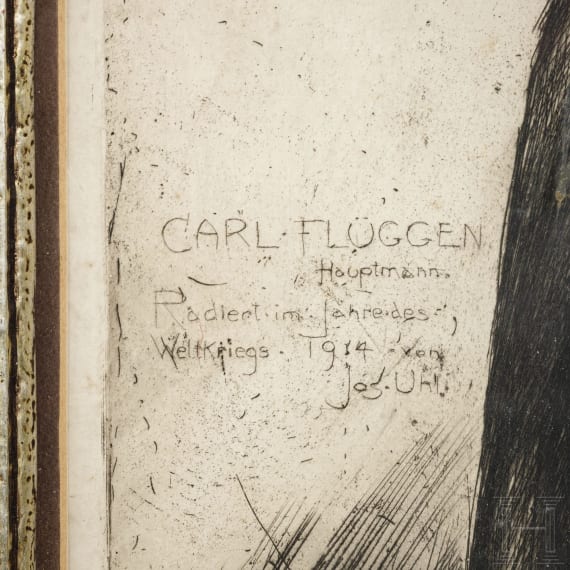 CARL·FLÜGGEN
Hauptmann.
Radiert·im·Jahre·des·
Weltkriegs· 1914 ·von
Jos·Uhl.